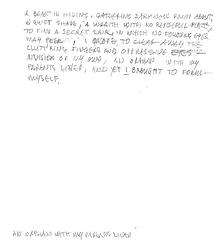 A BEAST IN HIDING, GATHERING DARKNESS FROM ABOUT,
A QUIET SHAPE, A WRAITH WITH NO
TO FIND A SECRET LAIR, IN WHICH NO EYES
MAY PEER, I BEGAN, TO CLEAR AWAY THE
CLUTCHING FINGERS AND OPPRESSIVE
DIVISION OF MY OWN, AN ORPHAN WITH MY
PARENTS LIVED, AND YET I BROUGHT TO FORM
MYSELF.
AN ORPHAN WITH MY PARENTS LIVED